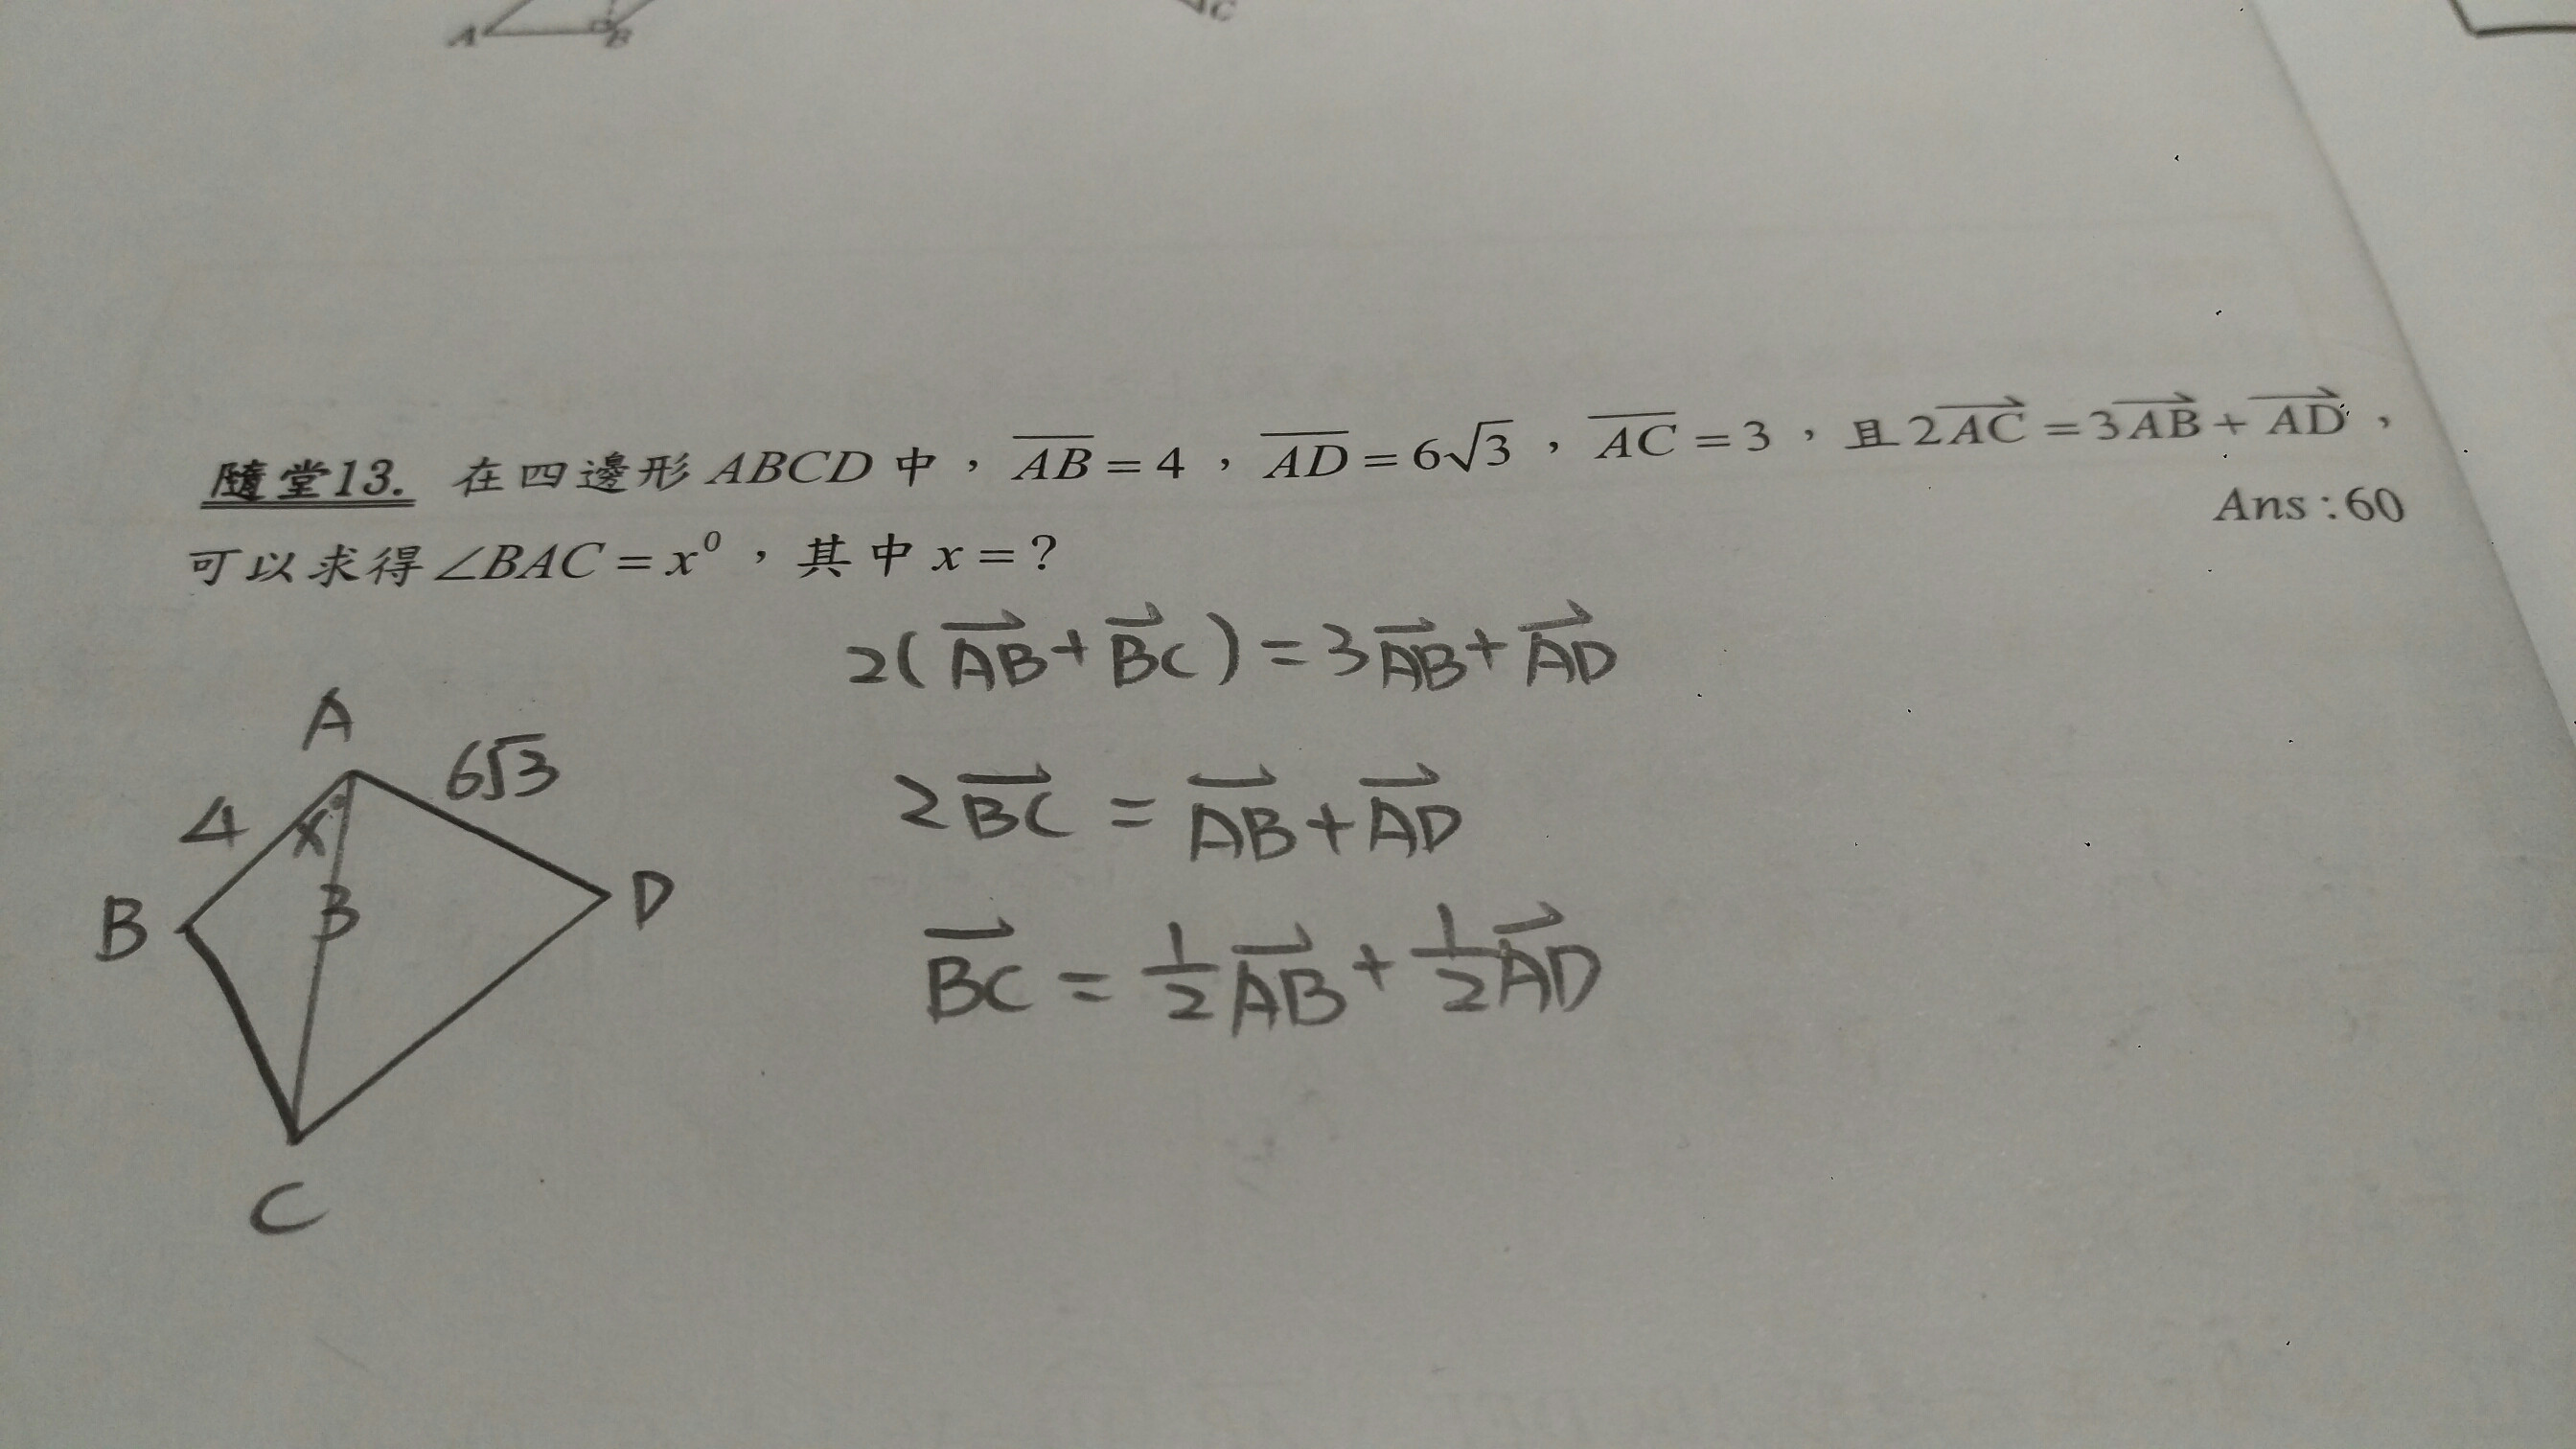 A B
C
隨堂13. 在四邊形ABCD中，\overline{AB}=4，\overline{AD}=6√3，\overline{AC}=3，且2\overrightarrow{AC}=3\overrightarrow{AB}+\overrightarrow{AD}，
Ans:60
可以求得∠BAC=x⁰，其中x=?
2(\overrightarrow{AB}+\overrightarrow{BC})=3\overrightarrow{AB}+\overrightarrow{AD}
2\overrightarrow{BC}=\overrightarrow{AB}+\overrightarrow{AD}
\overrightarrow{BC}=\frac{1}{2}\overrightarrow{AB}+\frac{1}{2}\overrightarrow{AD}
A
6√3
4
x
B
3
D
C